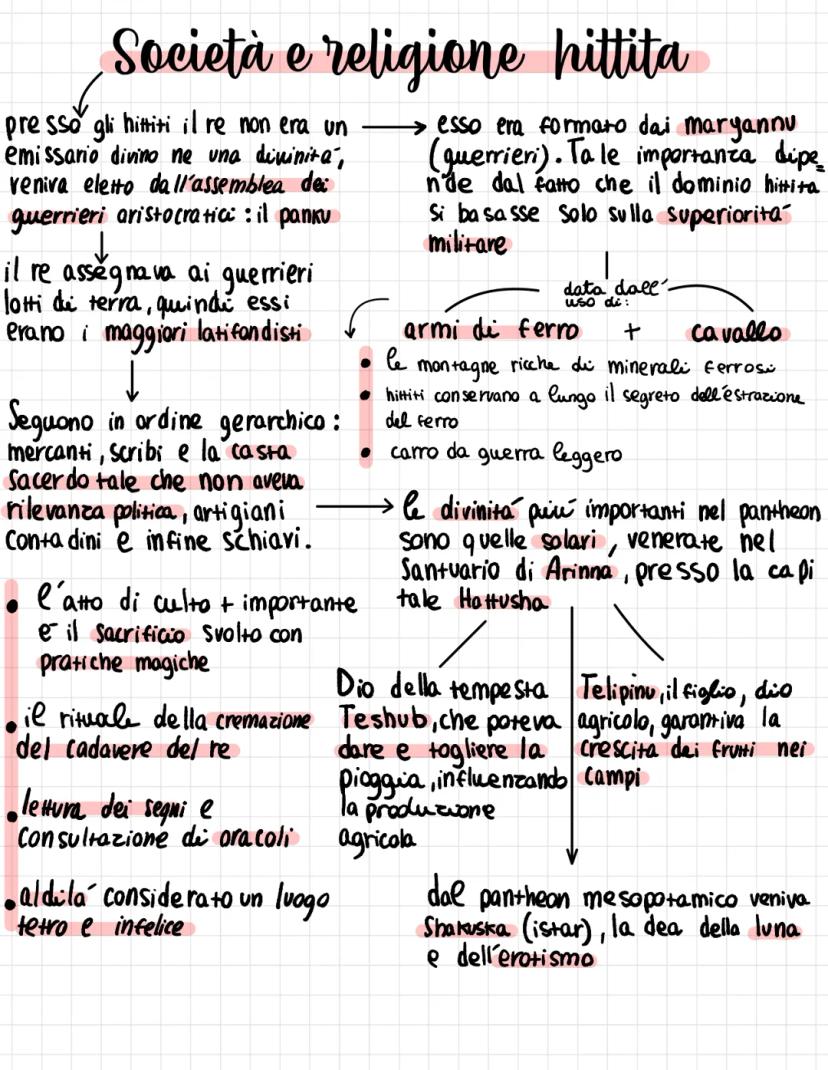 Società e religione hittita
presso gli hittiti il re non era un
emissario divino ne una divinità,
veniva eletto dall'assemblea dei
guerrieri aristocratici : il panku
esso era formato dai maryannu
(guerrieri). Tale importanza dipe
nde dal fatto che il dominio hittita
si basasse solo sulla superiorità
militare
il re assegnava ai guerrieri
lotti di terra, quindi essi
erano i maggiori latifondisti
data dall'
uso di:
armi di ferro + cavallo
• le montagne ricche di minerali ferrosi
• hittiti conservano a lungo il segreto dell'estrazione
del ferro
• carro da guerra leggero
Seguono in ordine gerarchico :
mercanti, scribi e la casta
sacerdotale che non aveva
rilevanza politica, artigiani
contadini e infine schiavi.
le divinità più importanti nel pantheon
sono quelle solari, venerate nel
Santuario di Arinna, presso la capi
tale Hattusha
• l'atto di culto + importante
è il sacrificio svolto con
pratiche magiche
• il rituale della cremazione
del cadavere del re
• lettura dei segni e
consultazione di oracoli
• aldilà considerato un luogo
tetro e infelice
Dio della tempesta
Teshub, che poteva
dare e togliere la
pioggia, influenzando
la produzione
agricola
Telipinu, il figlio, dio
agricolo, garantiva la
crescita dei frutti nei
campi
dal pantheon mesopotamico veniva
Shakuska (istar), la dea della luna
e dell'erotismo